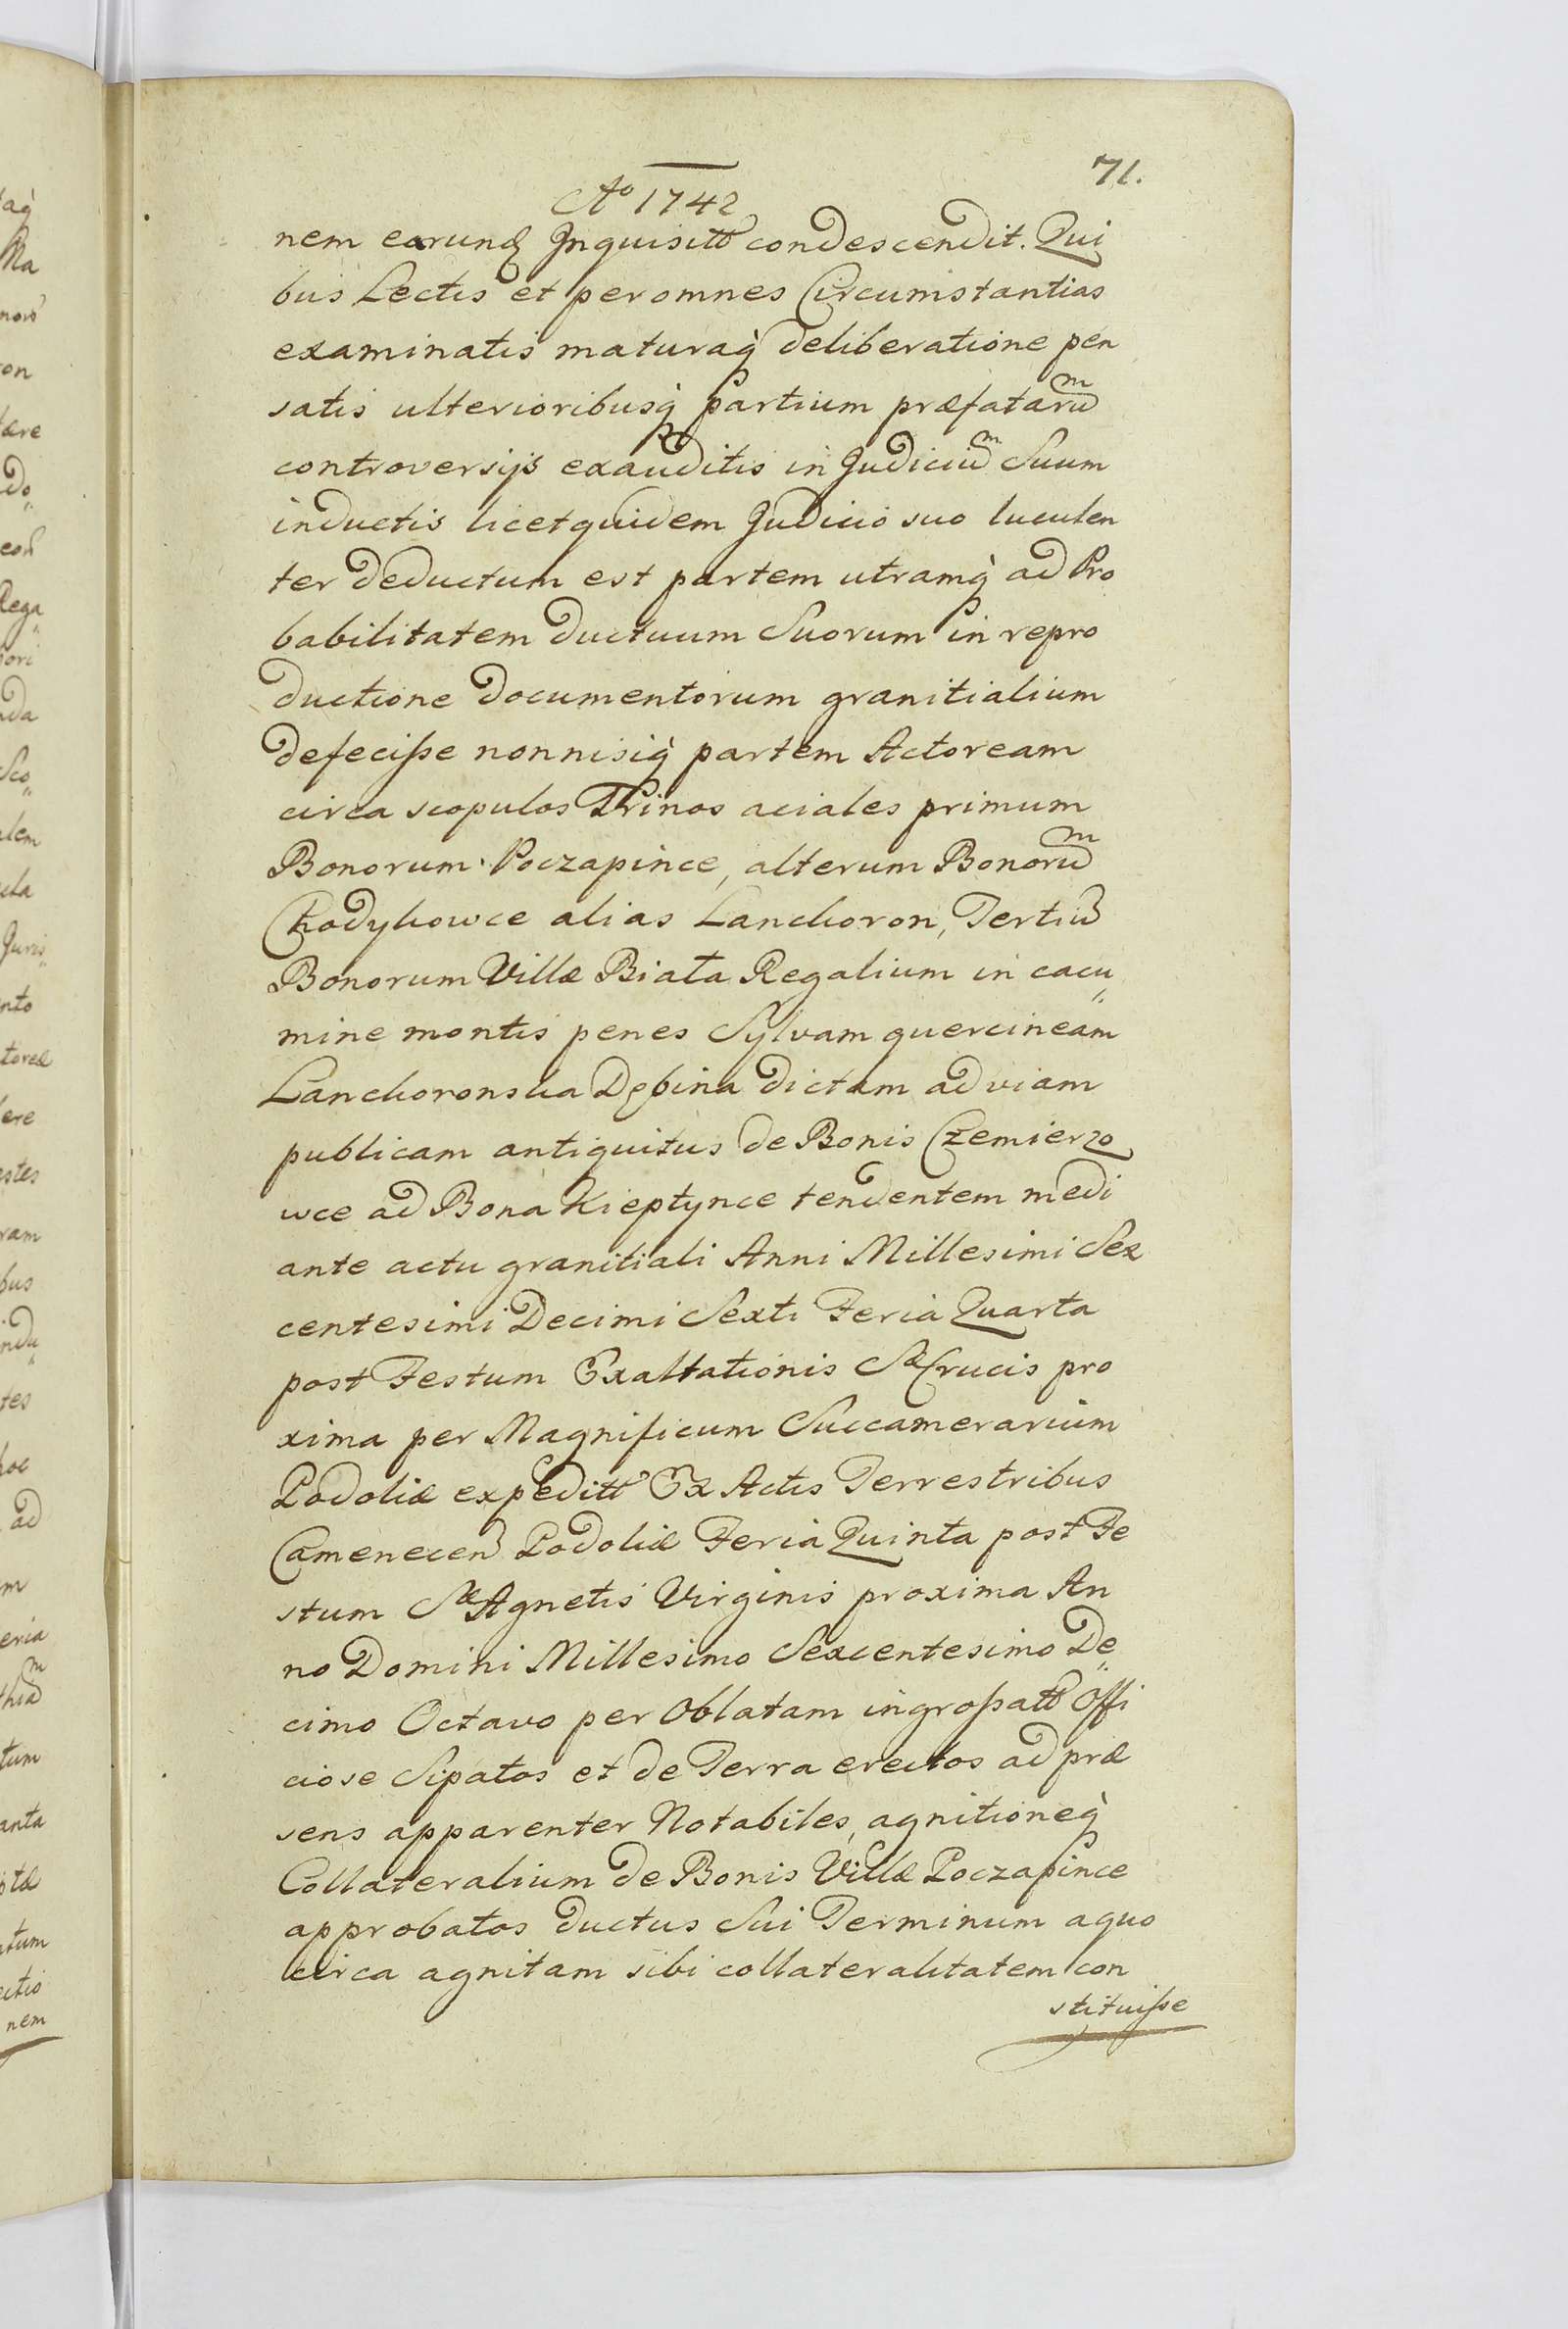 71.
Ao 1742
nem earund Inquisitt condescendit. Qui
bus Lectis et per omnes Circumstantias
examinatis maturaq̀ deliberatione pen
satis ulterioribusq̀ partium præfatarum
controversijs exauditis in Judicium Suum
inductis licet quidem Judicio suo luculen
ter deductum est partem utramq̀ ad Pro
babilitatem ductuum Suorum in repro
ductione documentorum granitialium
defecisse nonnisiq̀ partem Actoream
circa scopulos Trinos aciales primum
Bonorum Poczapince, alterum Bonorum
Chodykowce alias Lanckoron, Tertiu
Bonorum Villæ Biała Regalium in cacu„
mine montis penes Sylvam quercineam
Lanckoronska Dębina dictam ad viam
publicam antiquitus de Bonis Czemierzo
wce ad Bona Kieptynce tendentem medi
ante actu granitiali Anni Millesimi Sex
centesimi Decimi Sexti Feria Quarta
post Festum Exaltationis Sæ Crucis pro
xima per Magnificum Succamerarium
Podoliæ expeditt Ex Actis Terrestribus
Camenecen Podoliæ Feria Quinta post Fe
stum Sæ Agnetis Virginis proxima An
no Domini Millesimo Sexcentesimo De„
cimo Octavo per Oblatam ingrossatt Offi
ciose Sipatos et de Terra erectos ad præ
sens apparenter Notabiles, agnitioneq̀
Collateralium de Bonis Villæ Poczapince
approbatos ductus Sui Terminum aquo
circa agnitam sibi collateralitatem con
stituisse